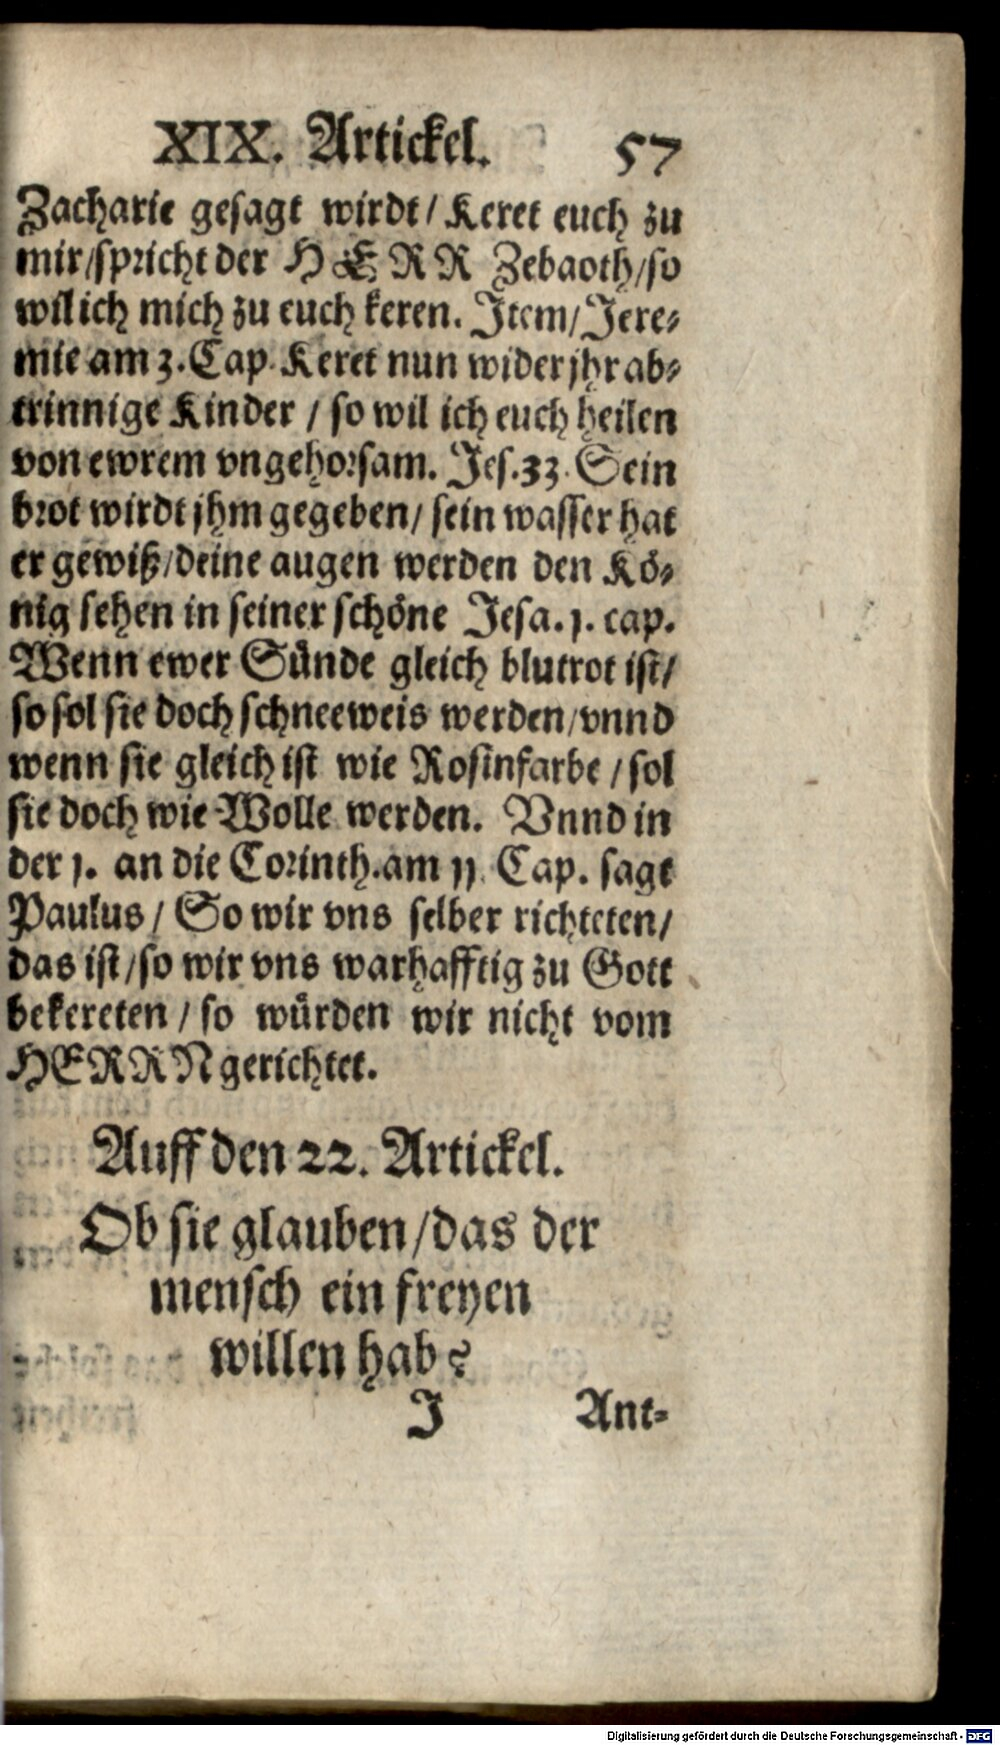 XIX. Artickel. 57
Zacharie gesagt wirdt / Keret euch zu
mir / spricht der HERR Zebaoth / so
wil ich mich zu euch keren. Item / Jere-
mie am 3. Cap. Keret nun wider jhr ab-
trinnige Kinder / so wil ich euch heilen
von ewrem vngehorsam. Jes. 33. Sein
brot wirdt jhm gegeben / sein wasser hat
er gewiß / deine augen werden den Kö-
nig sehen in seiner schöne Jesa. 1. cap.
Wenn ewer Sünde gleich blutrot ist /
so sol sie doch schneeweis werden / vnnd
wenn sie gleich ist wie Rosinfarbe / sol
sie doch wie Wolle werden. Vnnd in
der 1. an die Corinth. am 11. Cap. sagt
Paulus / So wir vns selber richteten /
das ist / so wir vns warhafftig zu Gott
bekereten / so würden wir nicht vom
HERRN gerichtet.
Auff den 22. Artickel.
Ob sie glauben / das der
mensch ein freyen
willen hab?
J Ant-
Digitalisierung gefördert durch die Deutsche Forschungsgemeinschaft - DFG